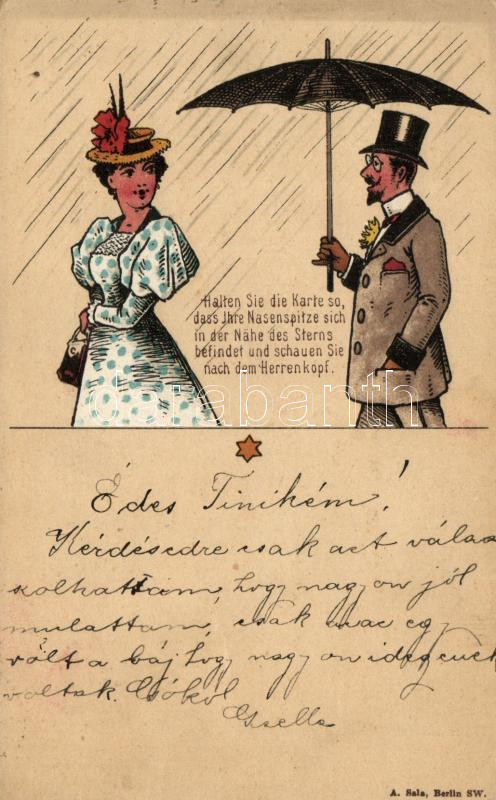 Halten Sie die Karte so,
dass Ihre Nasenspitze sich
in der Nähe des Sterns
befindet und schauen Sie
nach dem Herrenkopf.
darabanth
Édes Tinikém!
Kérdésedre csak azt válasz
kolhattam, hogy nagyon jól
mulattam, csak egy
volt a báj hogy nagyon idegenek
voltak. Csókol
Gisella
A. Sala, Berlin SW.